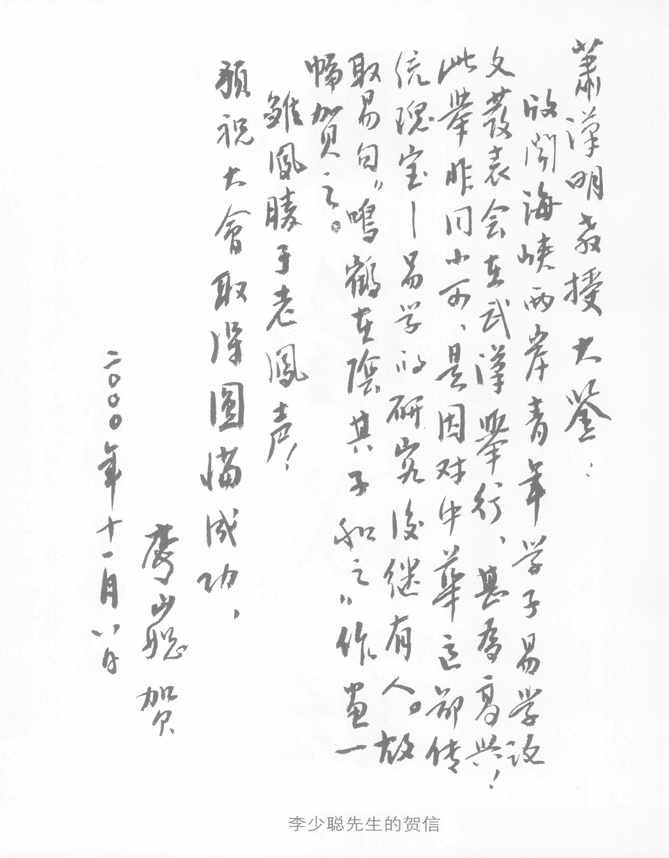 蕭漢明教授大鉴：
欣闻海峡两岸青年学子易学论
文发表会在武漢举行、甚為高兴！
此举非同小可、是因对中華這部传
统瑰宝—易学的研究後继有人。故
取易句“鳴鶴在陰其子和之”作畫一
幅贺之。
雏鳳勝于老鳳声！
預祝大會取得圓满成功，
李少聪 贺
二〇〇〇年十一月八日
李少聪先生的贺信